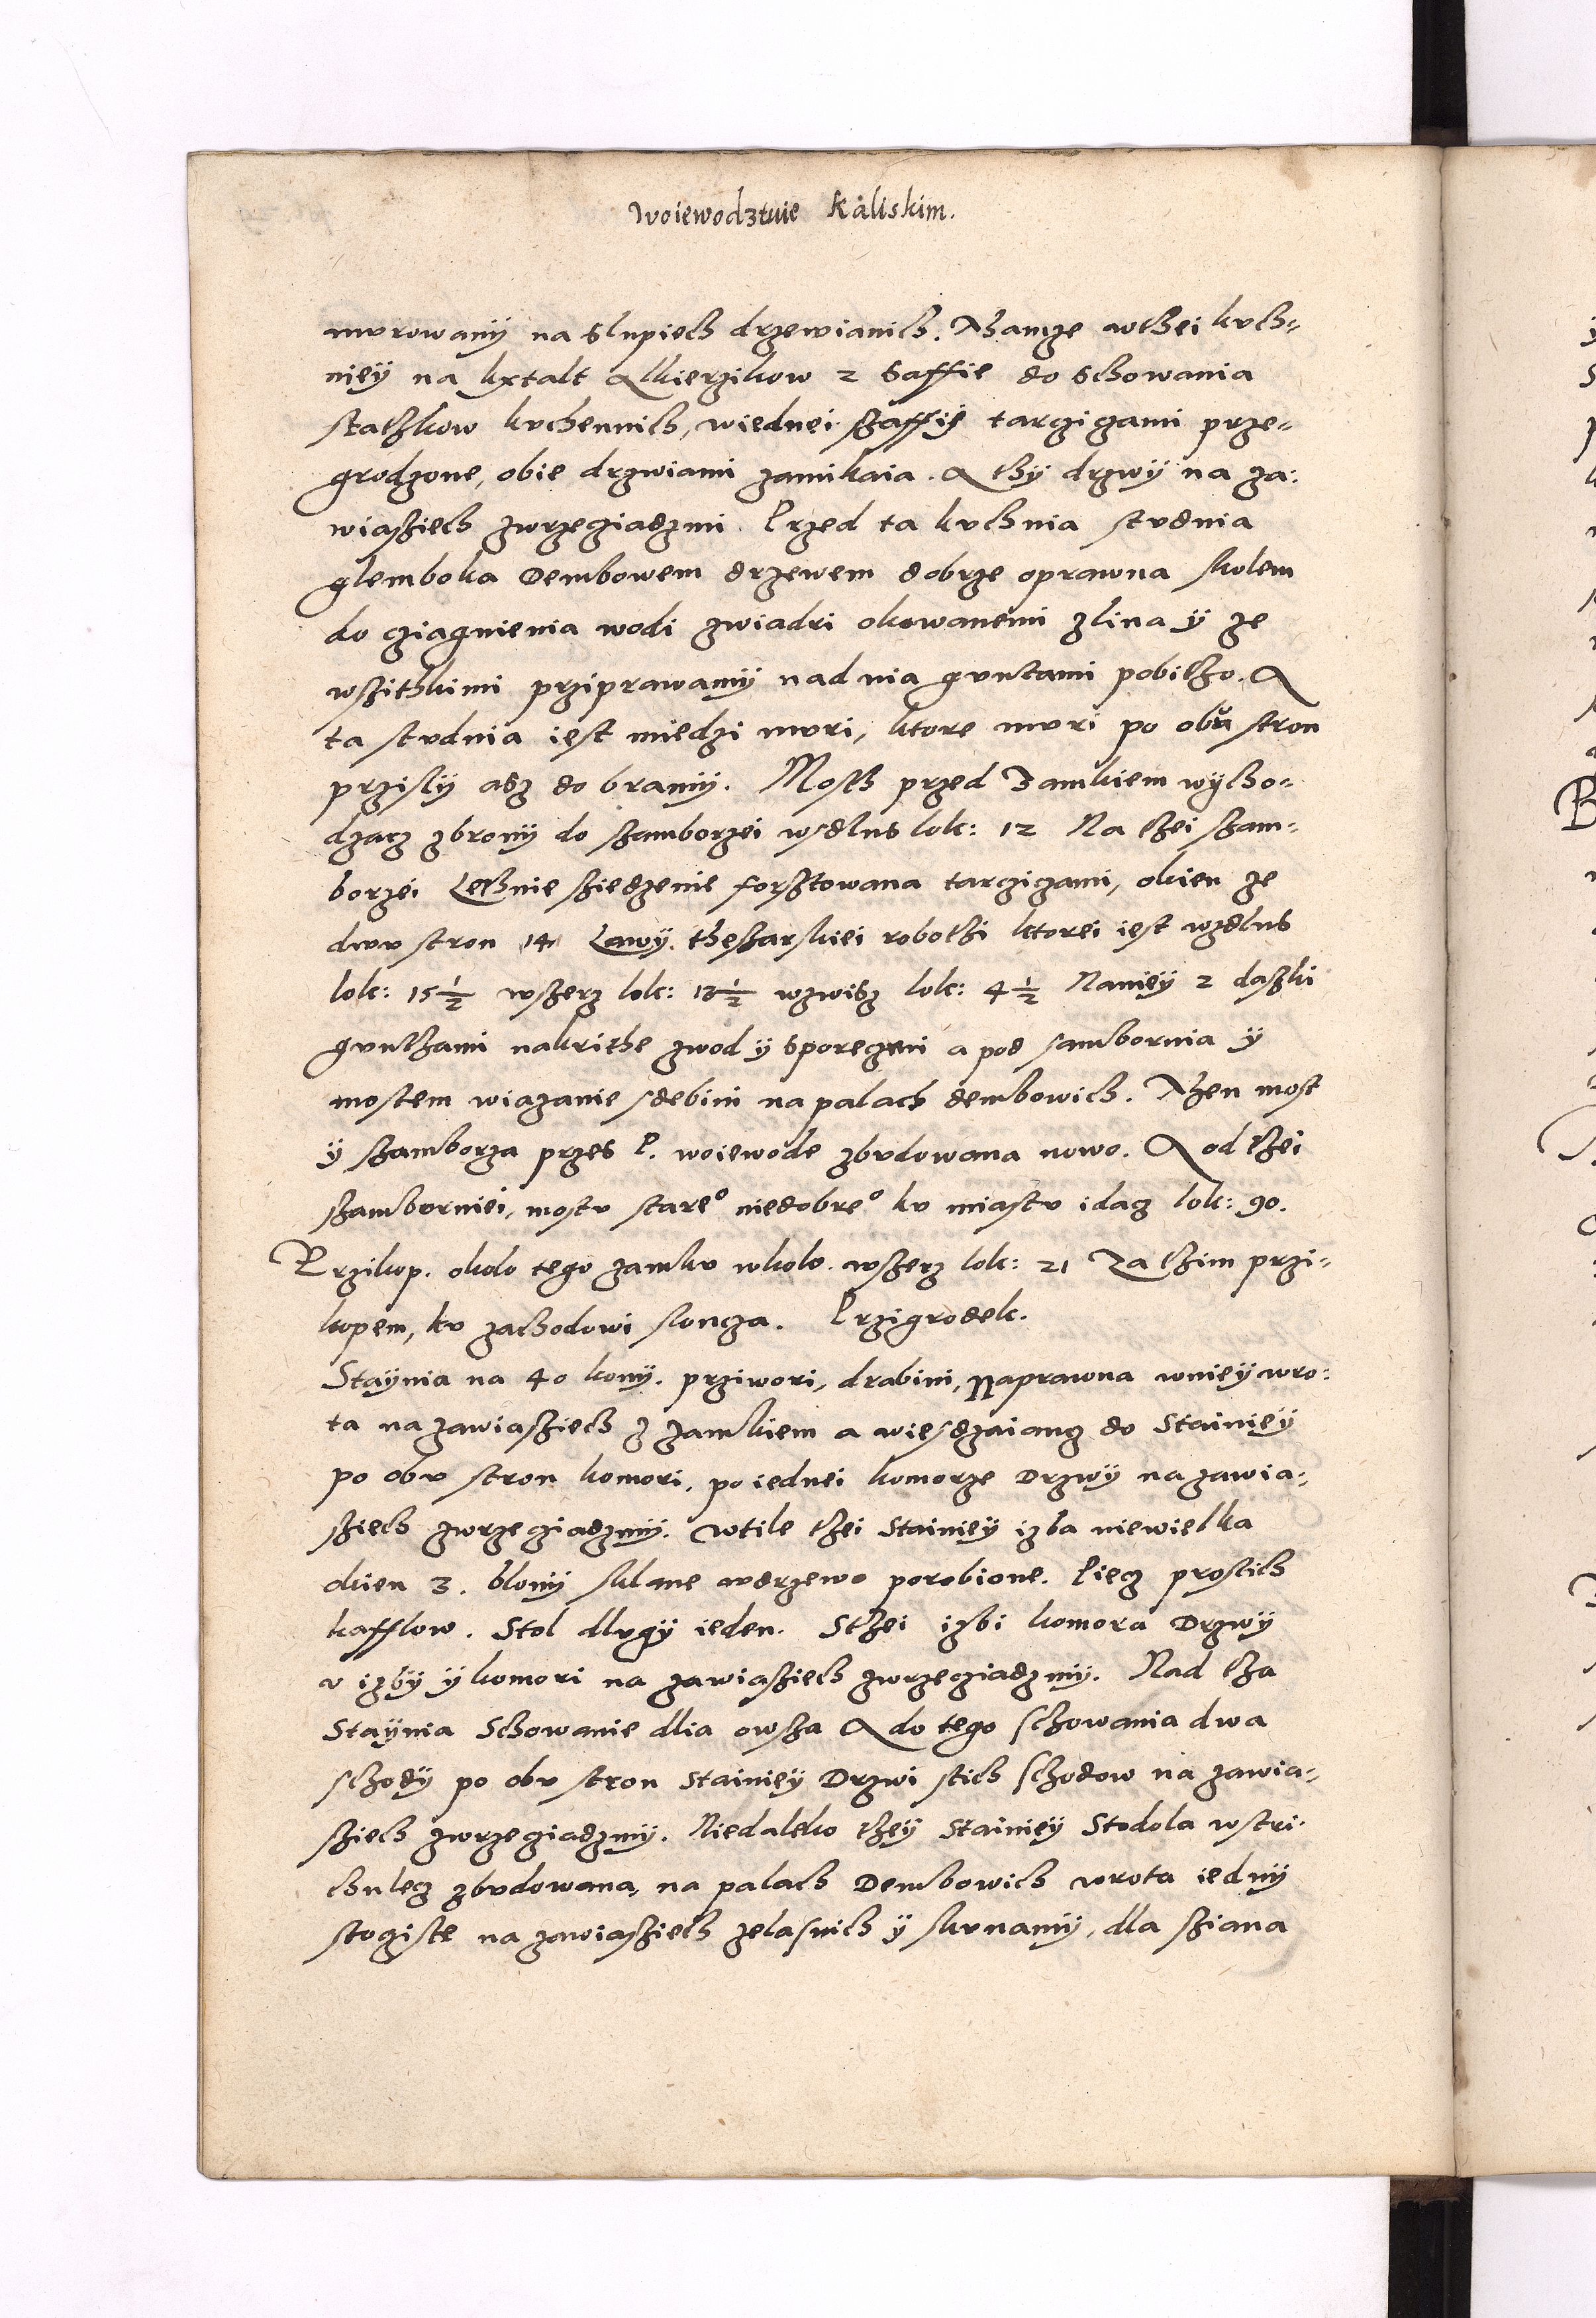 woiewodztwie kaliskim.
mvrowany na slupiech drzewianich. Thamze wthei kvch-
niey na kxtalt Alkierzikow 2 Saffie do Schowania
stathkow kvchennich, wiednei szaffie tarczigami prze-
grodzone, obie drzwiami zamikaia. A thy drzwy na za-
wiassiech zwrzegiadzmi. Przed ta kvchnia stvdnia
glemboka Dembowem drzewem dobrze oprawna skolem
do cziagnienia wodi zwiadri okowanemi zlina y ze
wszithkimi prziprawamy nad nia gvntami pobitho. A
ta stvdnia iest miedzi mvri, ktore mvri po obu stron
przisly asz do bramy. Most przed Zamkiem wycho-
dzacz zbrony do szamborzei wsdlus lok: 12 Na thei szam-
borzei Lethnie siedzenie forsztowana tarczigami, okien ze
dwv stron 14 Lawy. thesarskiei robothi ktorei iest wzdlus
lok: 15 1/2 wszerz lok: 13 1/2 wzwisz lok: 4 1/2 Naniey 2 daszki
gvnthami nakrithe zwod y sporegzni a pod sambornia y
mostem wiazanie sdebini na palach dembowich. Then most
y szamborza przes P. woiewode zbvdowana nowo. A od thei
szamborniei, mostv stare° niedobre° kv miastv idacz lok: 90.
Przikop. okolo tego zamkv wkolo. wszerz lok: 21 Za thim przi-
kopem, kv zachodowi sloncza. Przigrodek.
Staynia na 40 kony. prziwori, drabini, Naprawna wniey wro-
ta na zawiassiech z zamkiem a wiesdzaiancz do Stainiey
po obv stron komori, po iednei komorze Drzwy na zawia-
siech zwrzecziadzmy. wtile thei Stainiey izba niewielka
okien 3. blony sklane wdrzewo porobione. Piecz prostich
kafflow. Stol dlvgy ieden. Sthei izbi komora Drzwy
v izby y komori na zawiasiech zwrzecziadzmy. Nad tha
Staynia Schowanie dlia owsza A do tego schowania dwa
schody po obv stron Stainiey Drzwi stich schodow na zawia-
siech zwrzegiadzmy. Niedaleko they Stainiey Stodola wstri-
chulecz zbvdowana, na palach Dembowich wrota iedny
stogiste na zawiassiech zelasnich y skvnamy, dla siana